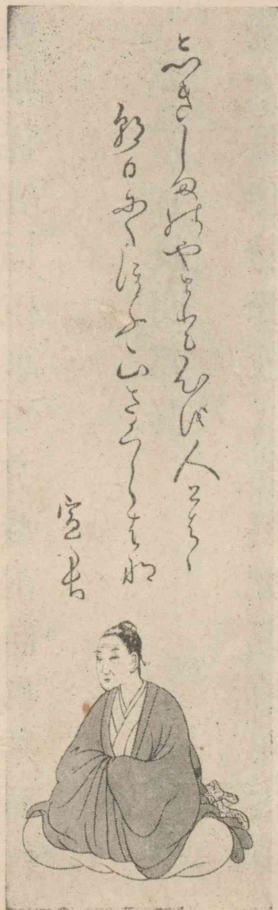 しきしまのやまとこゝろを人とはゝ
朝日にゝほふ山さくらはな
宣長